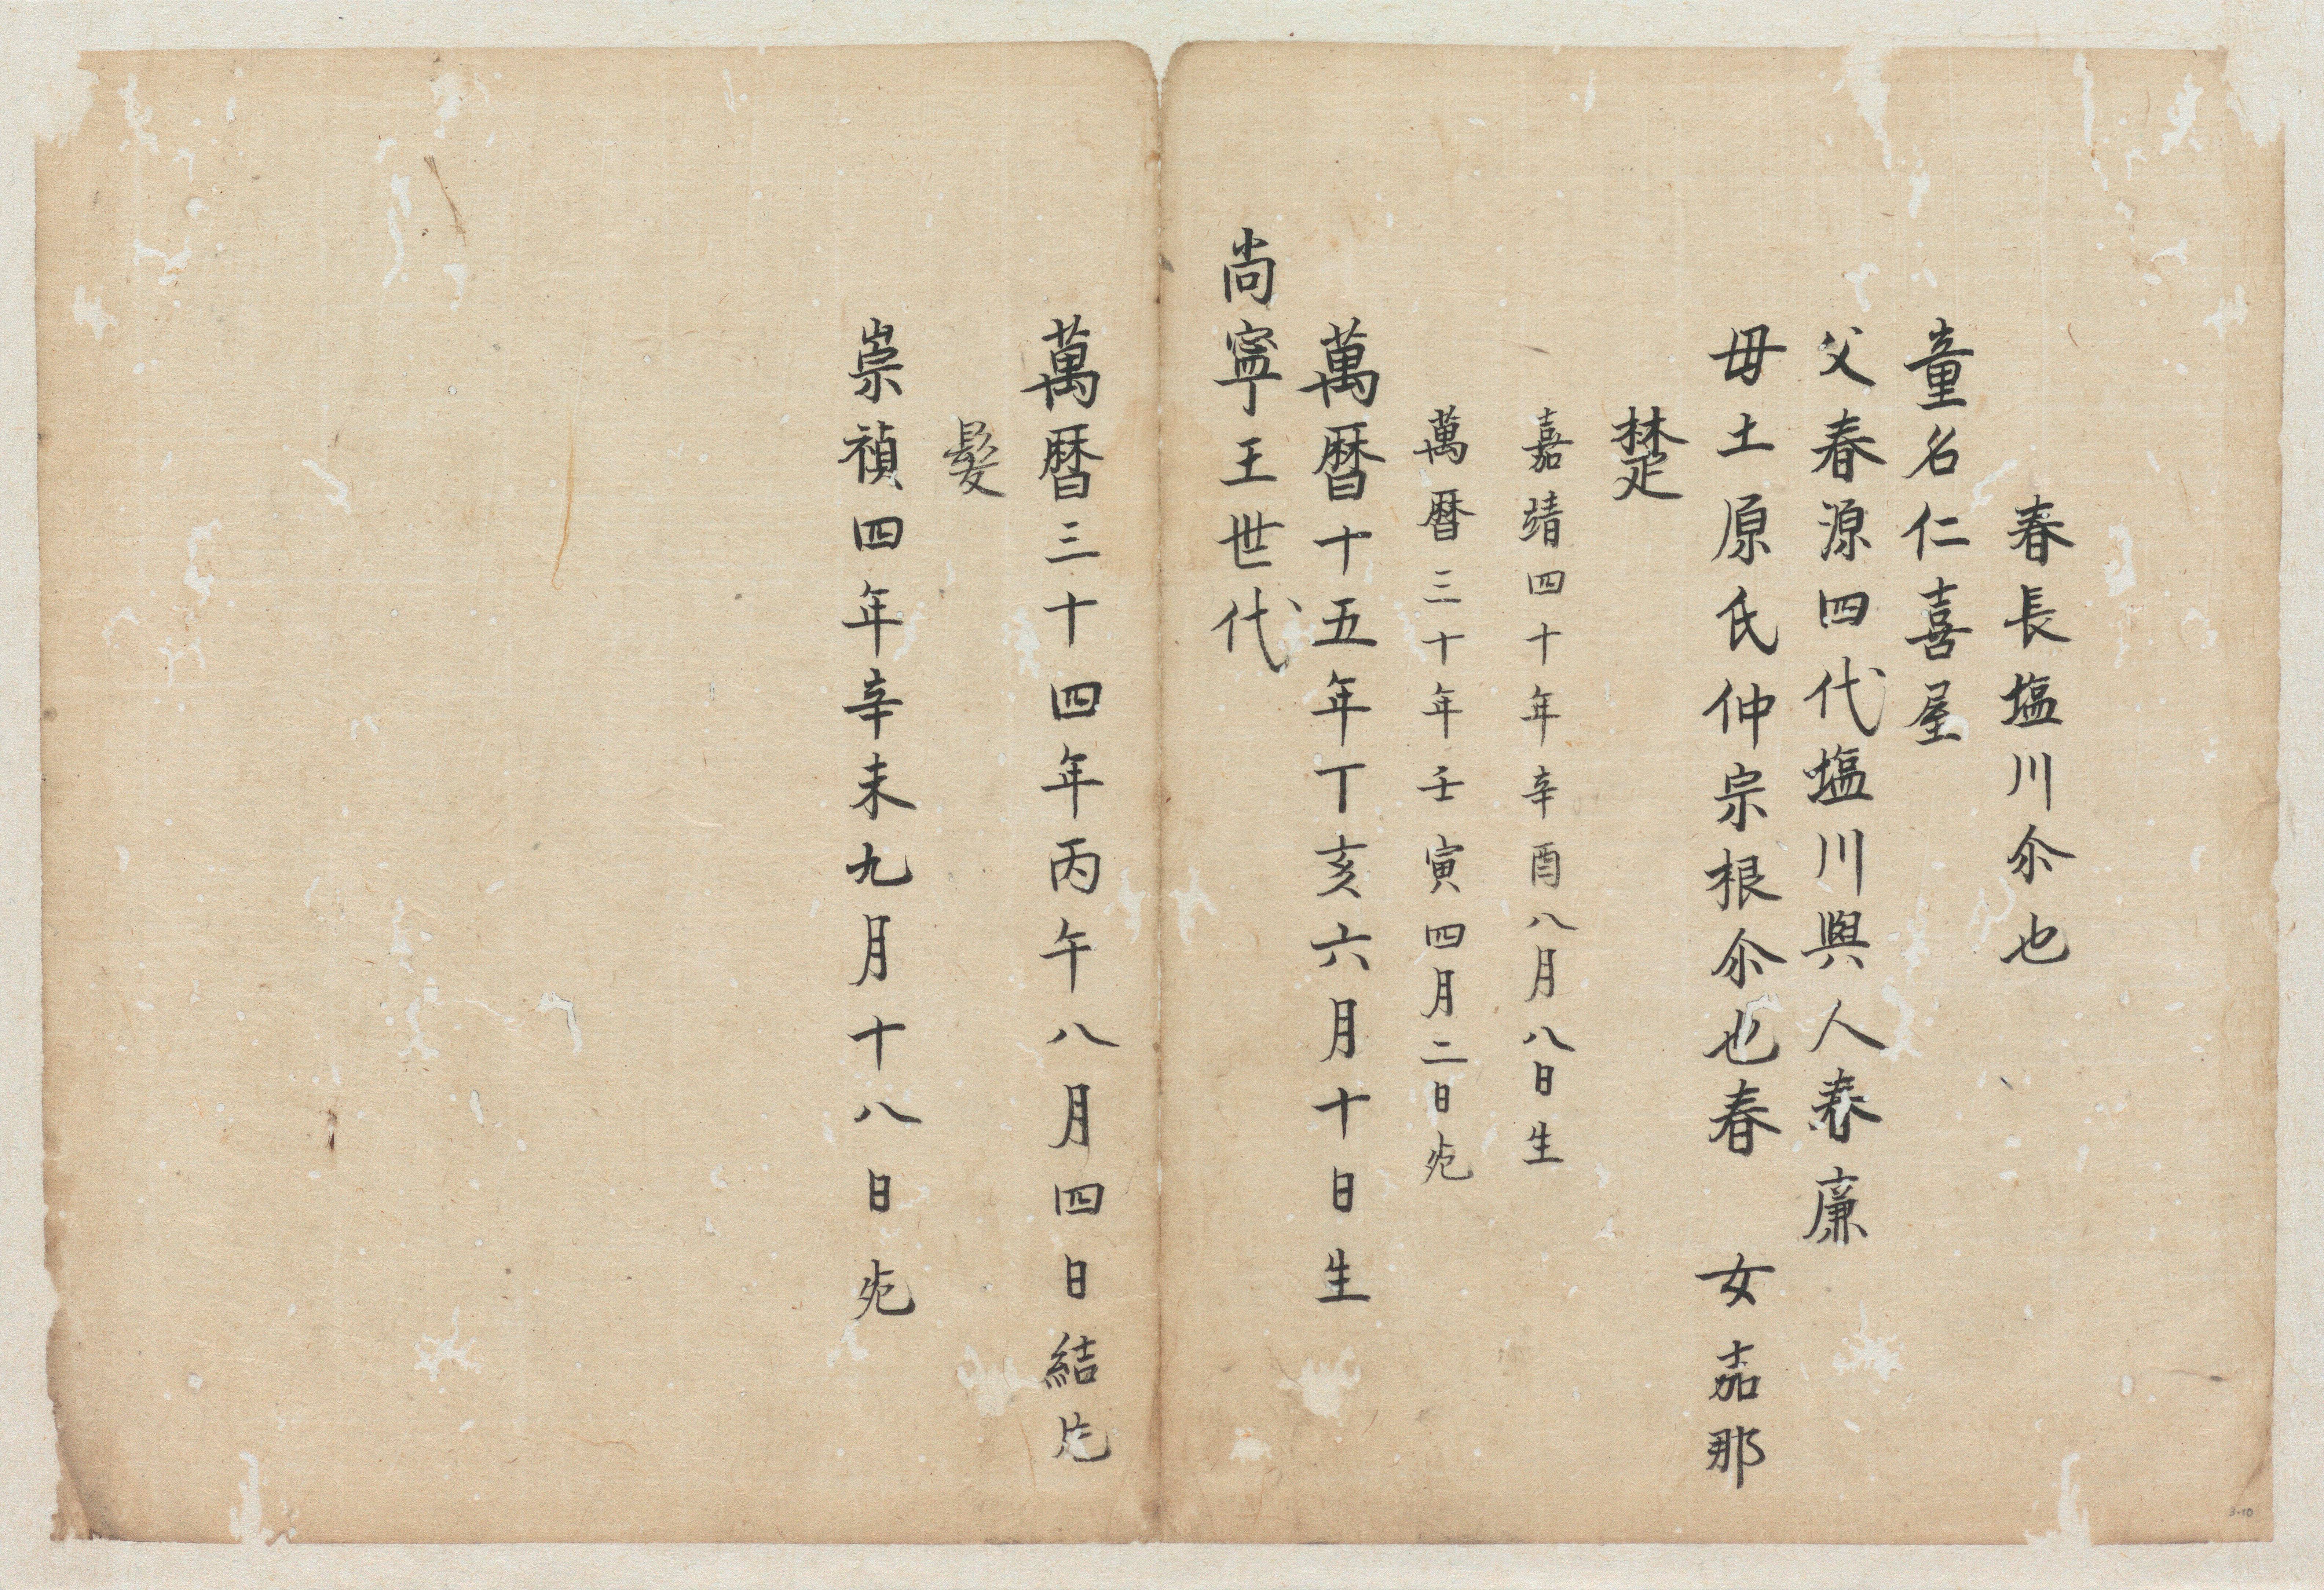 春長塩川尒也
童名仁喜屋
父春源四代塩川與人春廉
母土原氏仲宗根尒也春 女嘉那
楚
嘉靖四十年辛酉八月八日生
萬暦三十年壬寅四月二日死
萬暦十五年丁亥六月十日生
尚寧王世代
萬暦三十四年丙午八月四日結片
髪
崇禎四年辛未九月十八日死
3-10